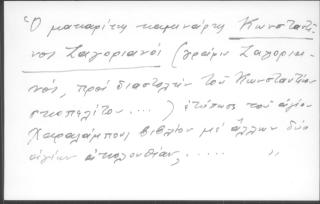 Ὁ μακαρίτης καμινάρης Κωνσταντῖ
νος Ζαγοριανός (γράφω Ζαγορια-
νός, πρός διαστολήν τοῦ Κωνσταντίνου
πολίτου...) ἐτύπωσε τοῦ ἁγίου
Χαραλάμπους βιβλίον μέ ἄλλων δύο
ἁγίων ἀκολουθίαν, ..... "